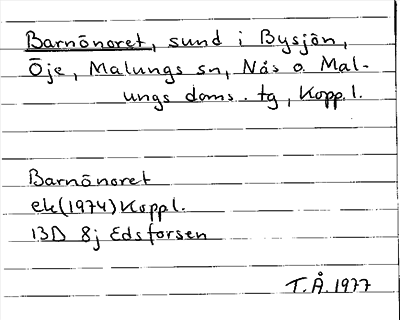 Barnönoret, sund i Bysjön,
Öje, Malungs sn, Nås o. Mal-
ungs doms. tg, Kopp. l.
Barnönoret
ek(1974)Koppl.
13D 8j Edsforsen
T.Å.1977